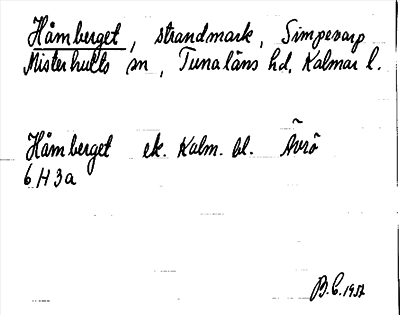 Håmberget, strandmark, Simpevarp
Misterhults sn, Tunaläns hd, Kalmar l.
Håmberget ek. Kalm. bl. Ävrö
6 H 3a
B.C. 1957